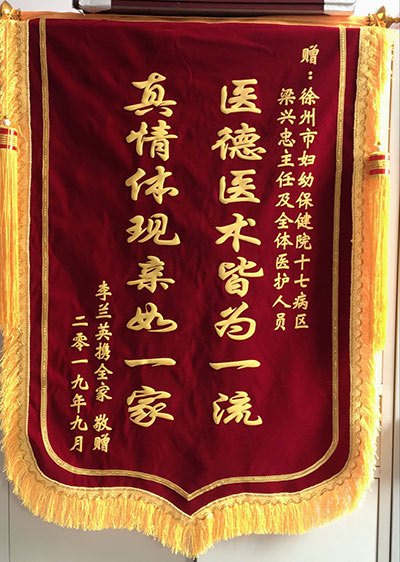 赠：徐州市妇幼保健院十七病区
梁兴忠主任及全体医护人员
医德医术皆为一流
真情体现亲如一家
李兰英携全家 敬赠
二零一九年九月